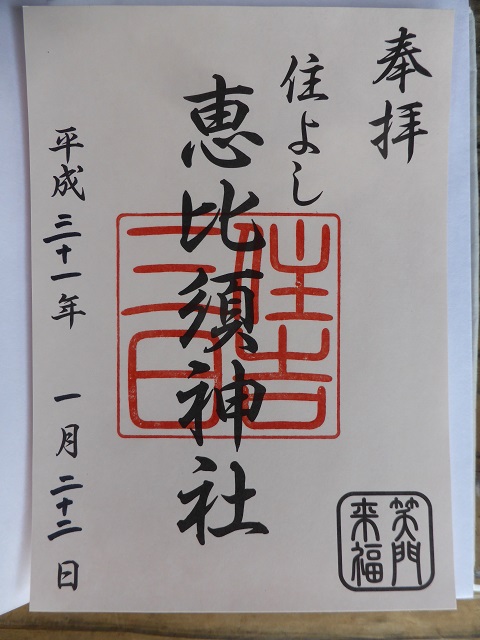 奉拝
住よし
恵比須神社
平成三十一年 一月二十二日
住吉
笑門
来福